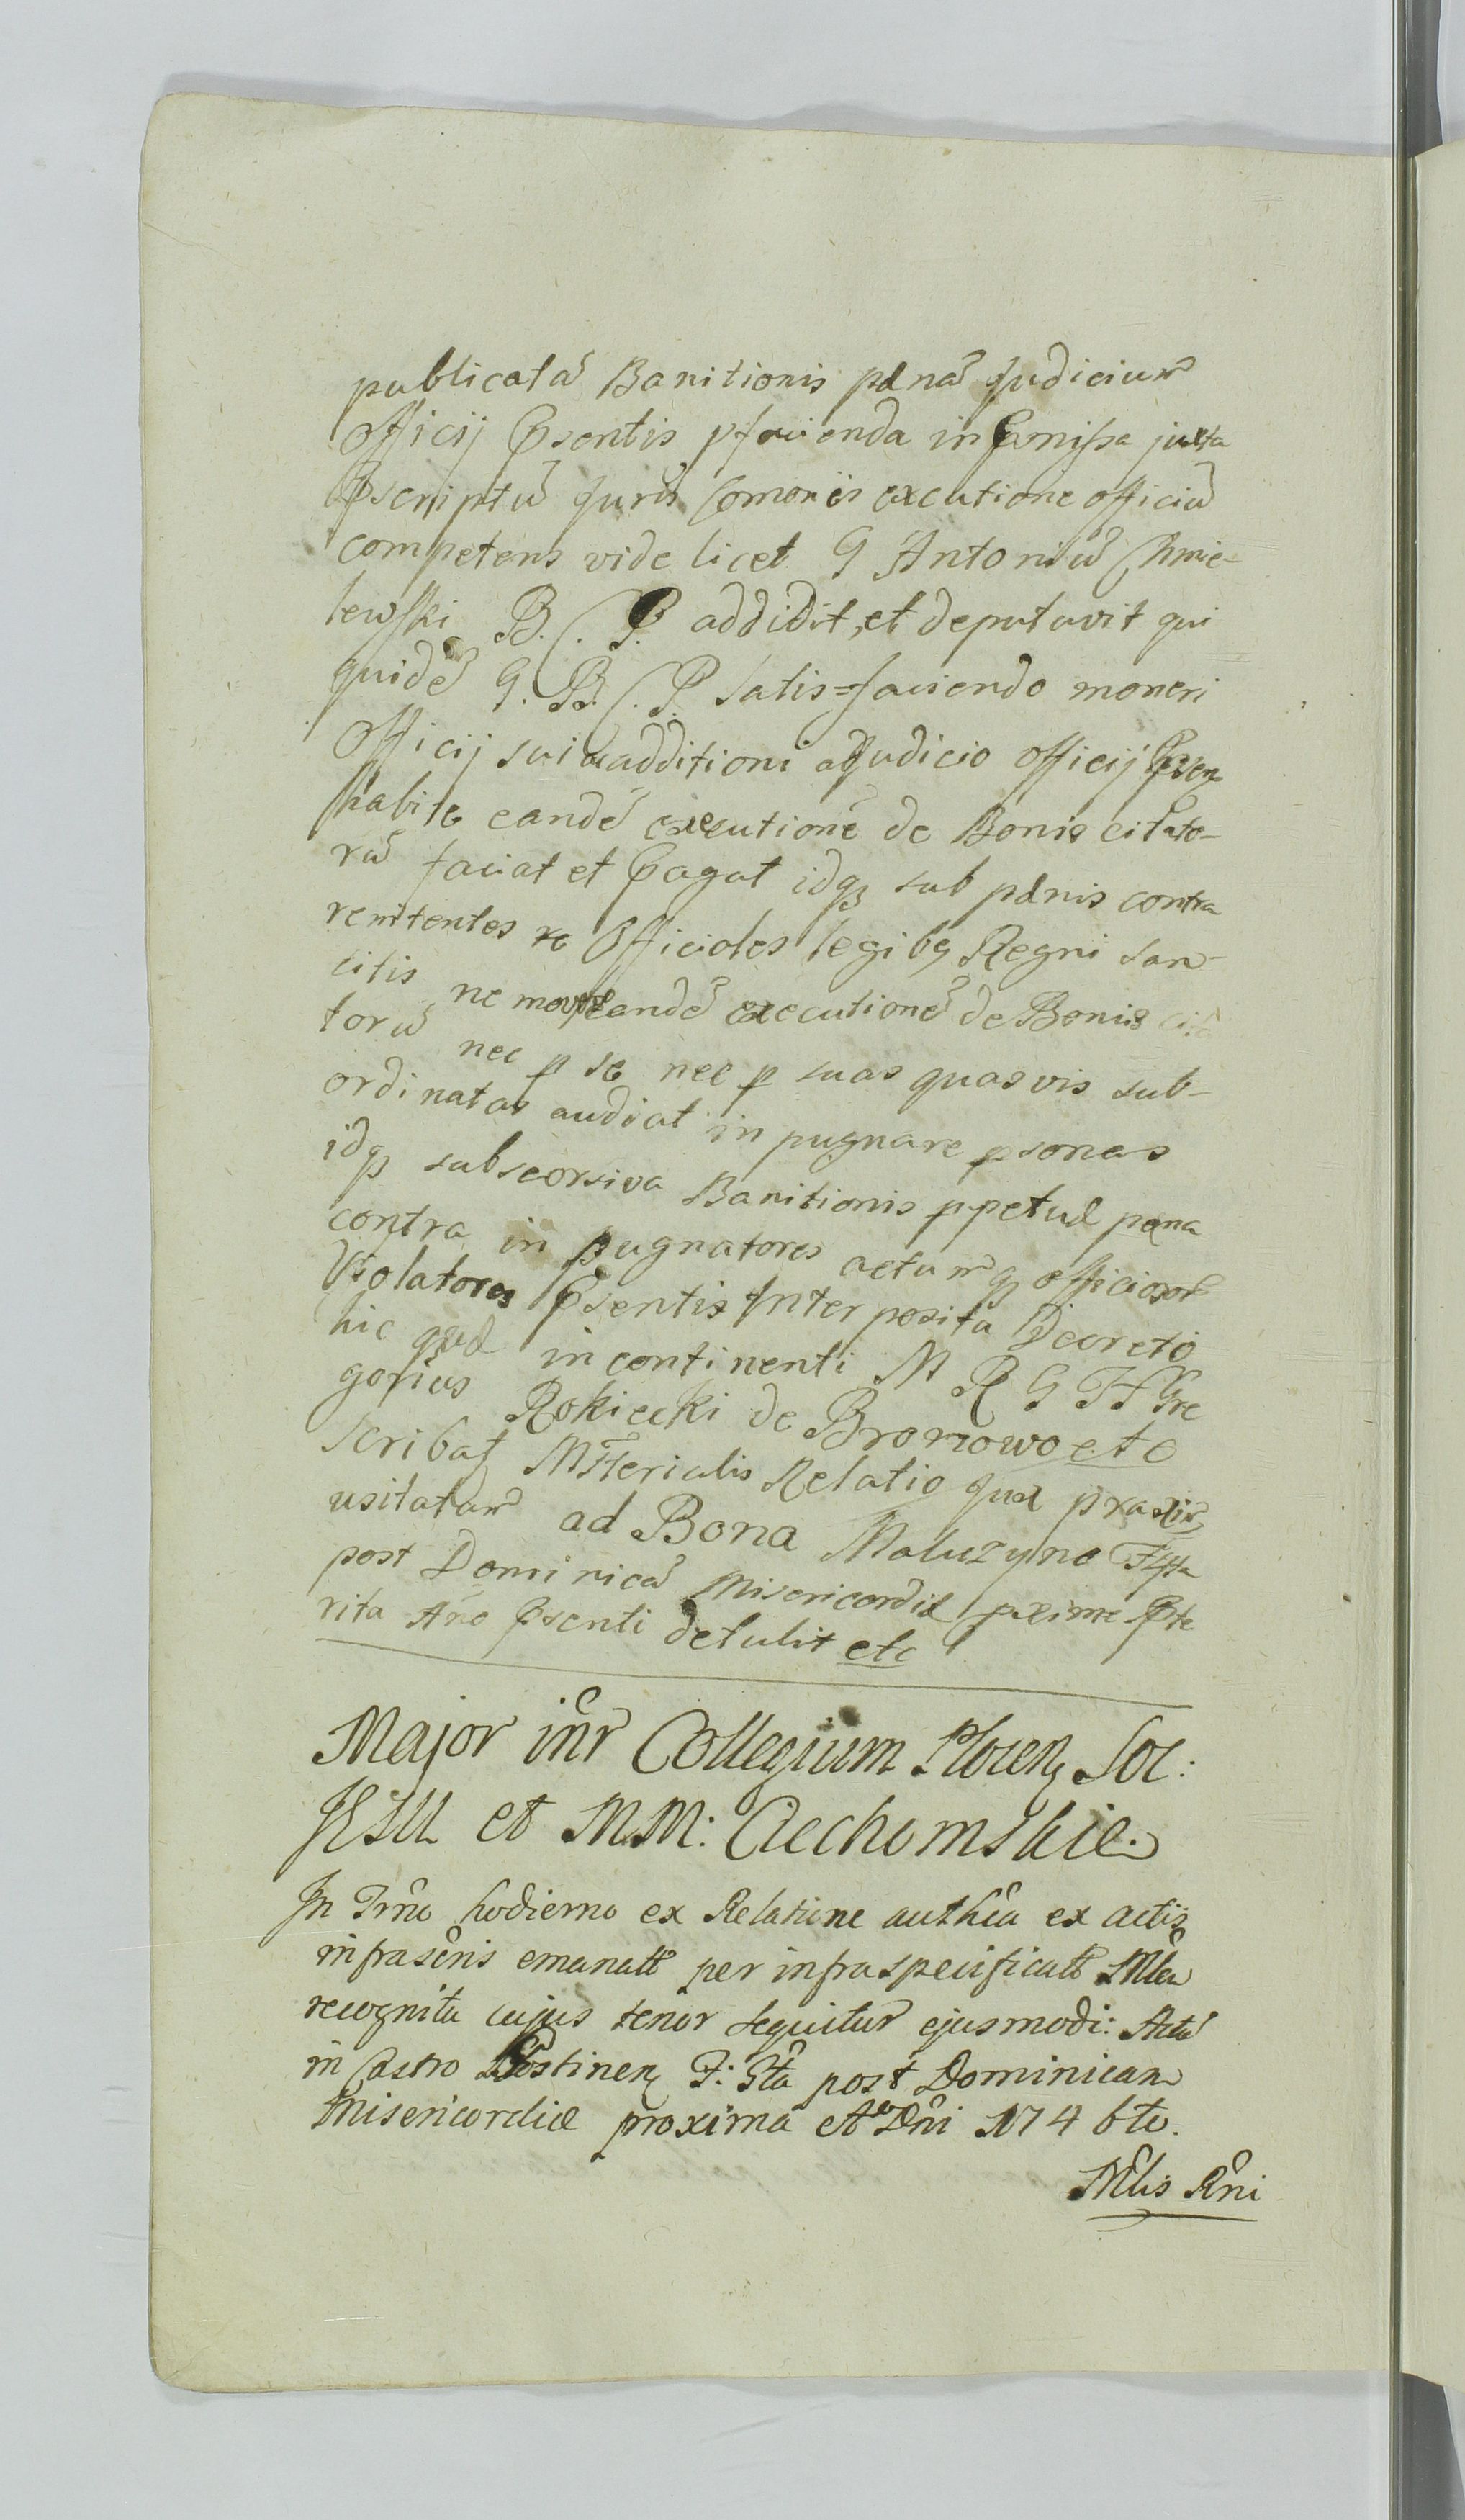 publicatã Banitionis pænã Judicium
Officij Psentis pfaciendo in Pmissa juxta
Pscriptũ Juris Comonis executione officiũ
competens videlicet G Antoniũ Chmie-
lewski B. C. P addidit, et deputavit qui
quidẽ G. B. C. P. satis=faciendo moneri
Officij sui additioni a Judicio Officij Psen
habite eandẽ executionẽ de Bonis citato-
rũ faciat et Pagat idq sub pænis contra
renitentes Officiales legibq Regni san-
citis ne eandẽ executionẽ de Bonis cita
torũ nec p se nec p suas quasvis sub-
ordinatas audiat in pugnare psonas
idq subseorsiva Banitionis ppetuæ pæna
contra in pugnatores actumq officiosor
Violatores Psentis Interposita Decreto
hic qud in continenti M R G H Gre
gorius Rokicki de Bromowo etc
Scribat Msterialis Relatio quæ praxim
usitatam ad Bona Maluzyno F 4ta
post Dominicã Misericordiæ pxime Pte
rita Año Psenti detulit etc
Major iñr Collegium Plocen Soc:
JESU et MM: Ciechomskie.
In Trño hodierno ex Relatione authẽa ex actis
infrascris emanatt per infraspecificatt Mlem
recognita cujus tenor sequitur ejusmodi: Actũ
in Castro Gostinen F: 5ta post Dominicam
Misericordiæ proxima Aº Dñi 1746to.
Mlis Rñi